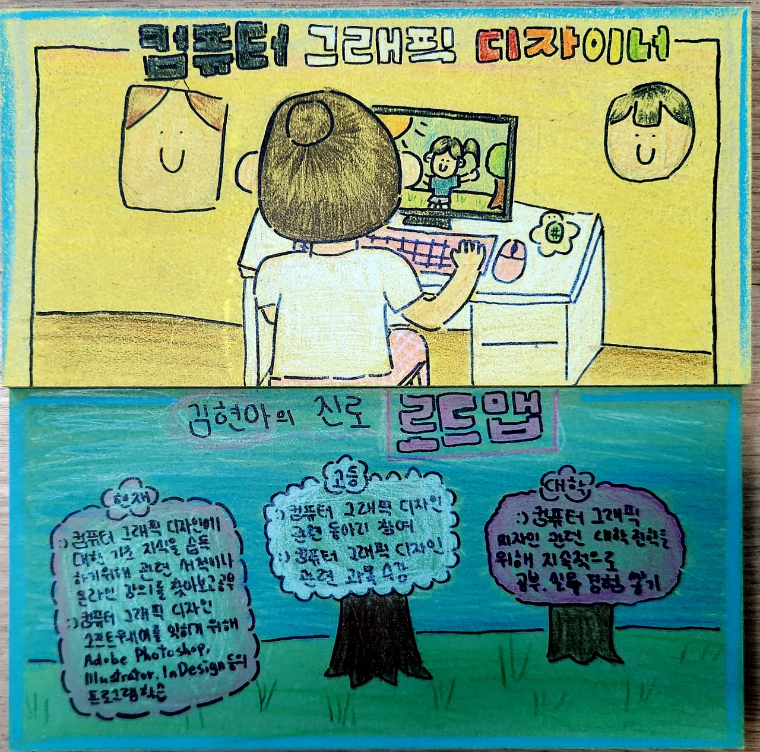 컴퓨터 그래픽 디자이너
김현아의 진로 로드맵
현재
:) 컴퓨터 그래픽 디자인에
대한 기초 지식을 습득
하기위해 관련 서적이나
온라인 강의를 찾아보고 공부
:) 컴퓨터 그래픽 디자인
소프트웨어를 익히기 위해
Adobe Photoshop,
Illustrator, InDesign 등의
프로그램 학습
고등
:) 컴퓨터 그래픽 디자인
관련 동아리 참여
:) 컴퓨터 그래픽 디자인
관련 과목 수강
대학
:) 컴퓨터 그래픽
디자인 관련 대학 진학을
위해 지속적으로
공부, 실무 경험 쌓기